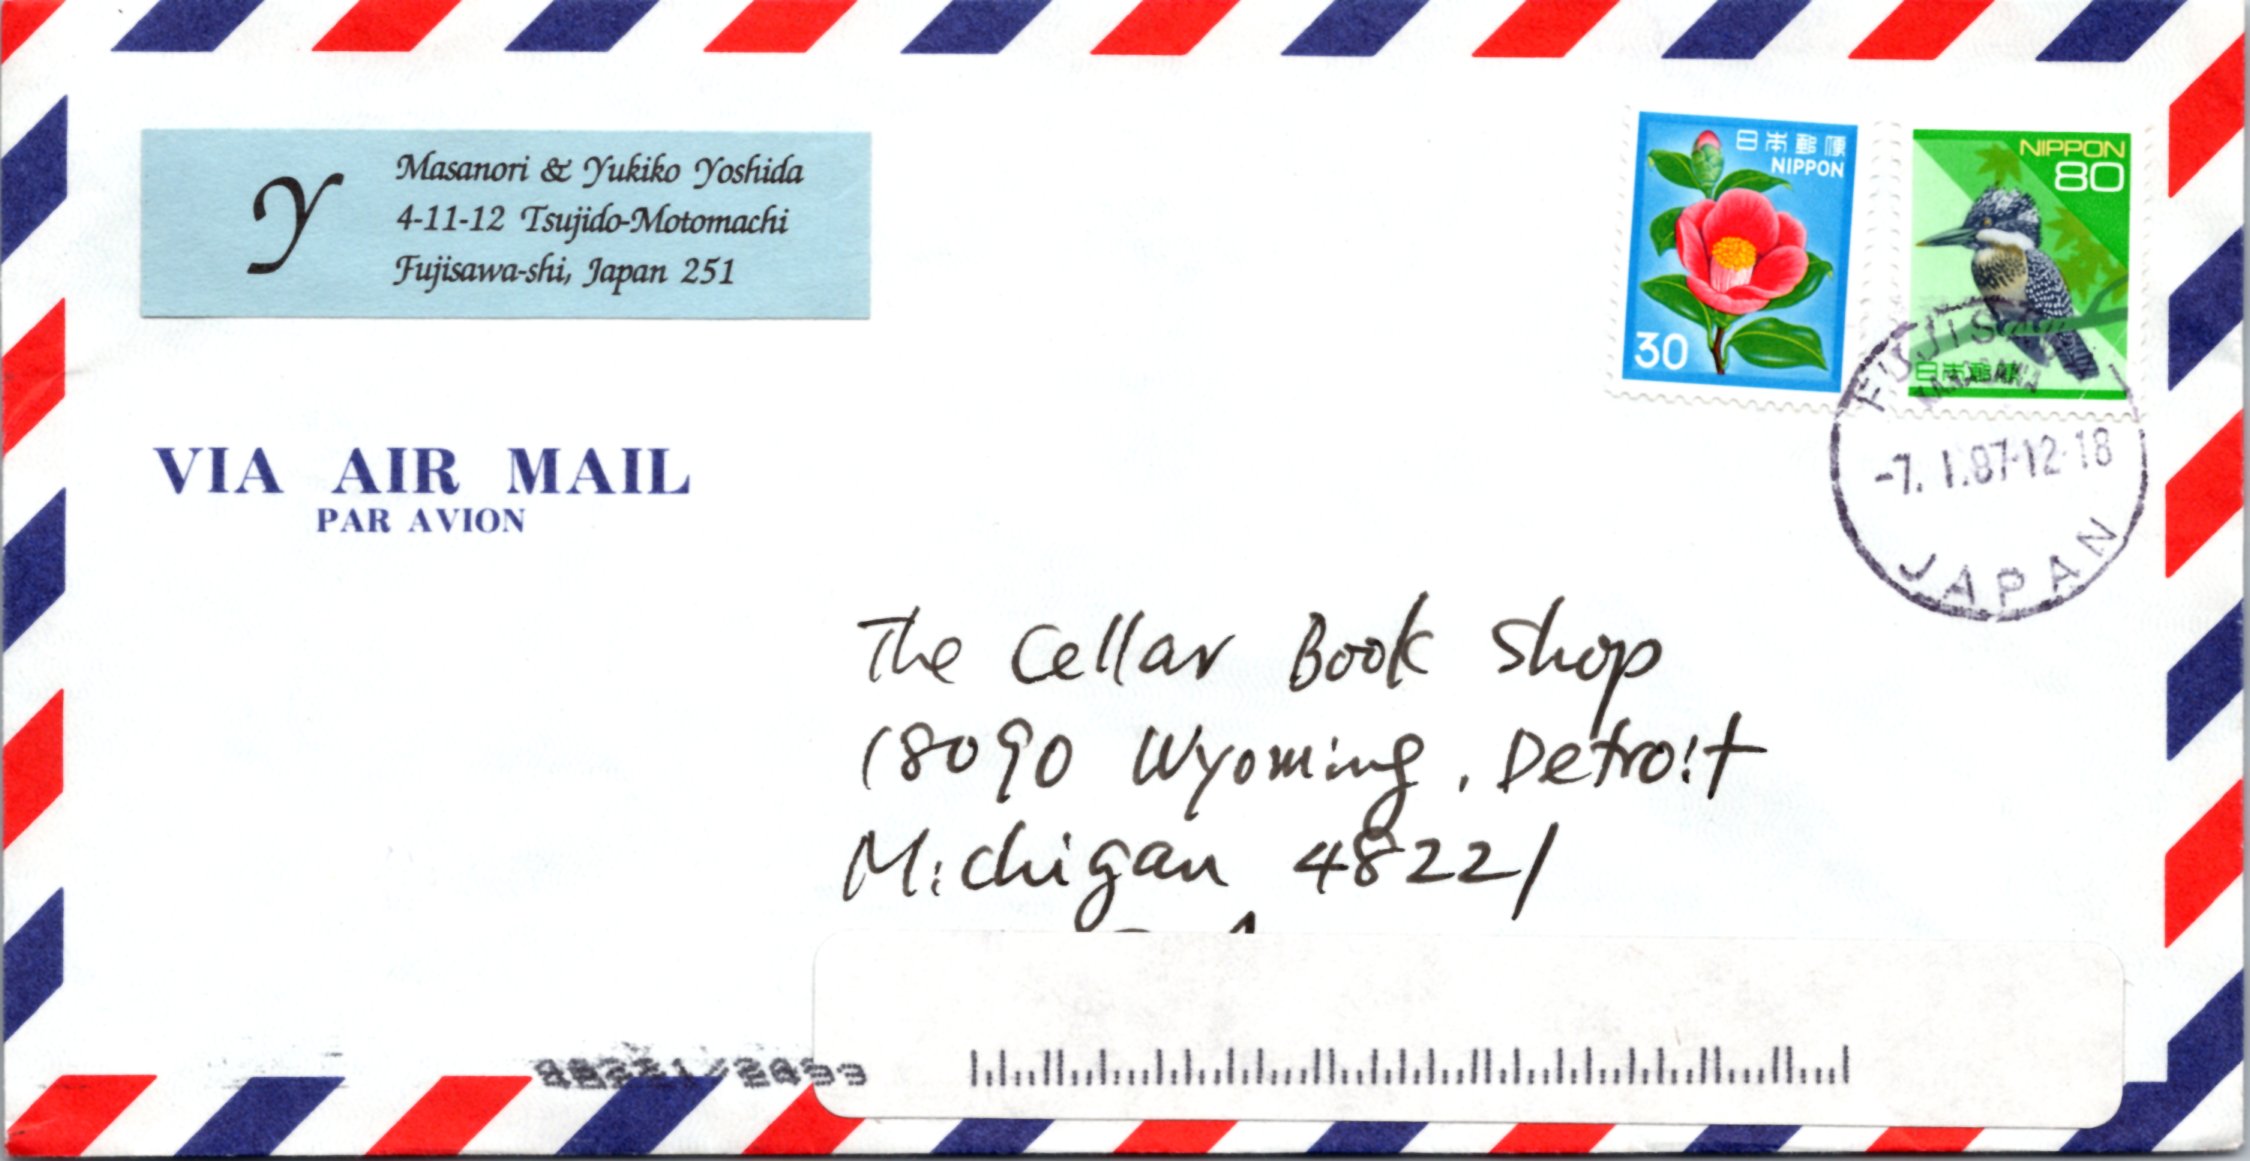 Y
Masanori & Yukiko Yoshida
4-11-12 Tsujido-Motomachi
Fujisawa-shi, Japan 251
日本郵便
NIPPON
30
NIPPON
80
日本郵便
VIA AIR MAIL
PAR AVION
FUJISAWA
-7.I.87-12-18
JAPAN
The Cellar Book Shop
18090 Wyoming, Detroit
Michigan 48221